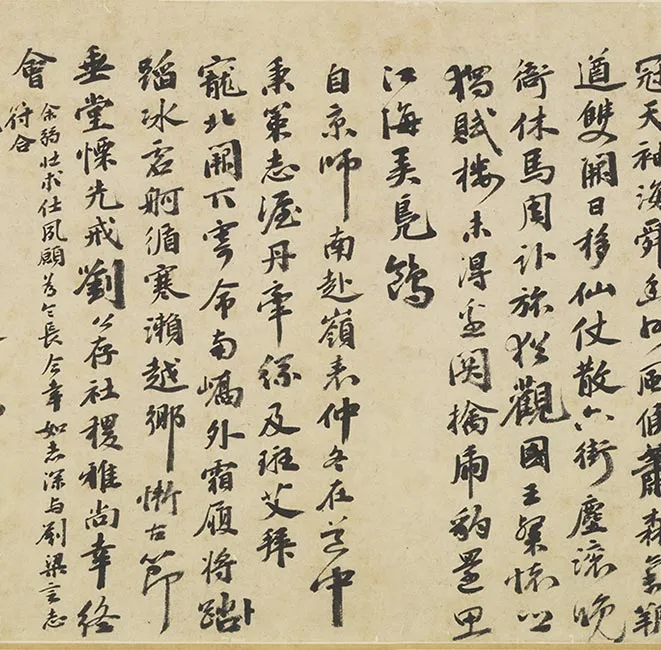 冠天袖海舜風候蕭森
遒雙闕日移仙仗散六街塵滾晚
衙休馬周旅猶觀國王粲懷
獨賦樓未得擒虎豹
江海美鳧
自京師南赴嶺表仲冬在道中
秉策志渥丹牽絲及班艾拜
寵北闕下寄命南嶠外霜履將
蹈冰宕舸循寒瀨越鄉慚古節
垂堂慄先戒劉公存社稷雅尚幸終
會
余弱壯求仕夙願為令長今幸如志深与劉梁言志
符合